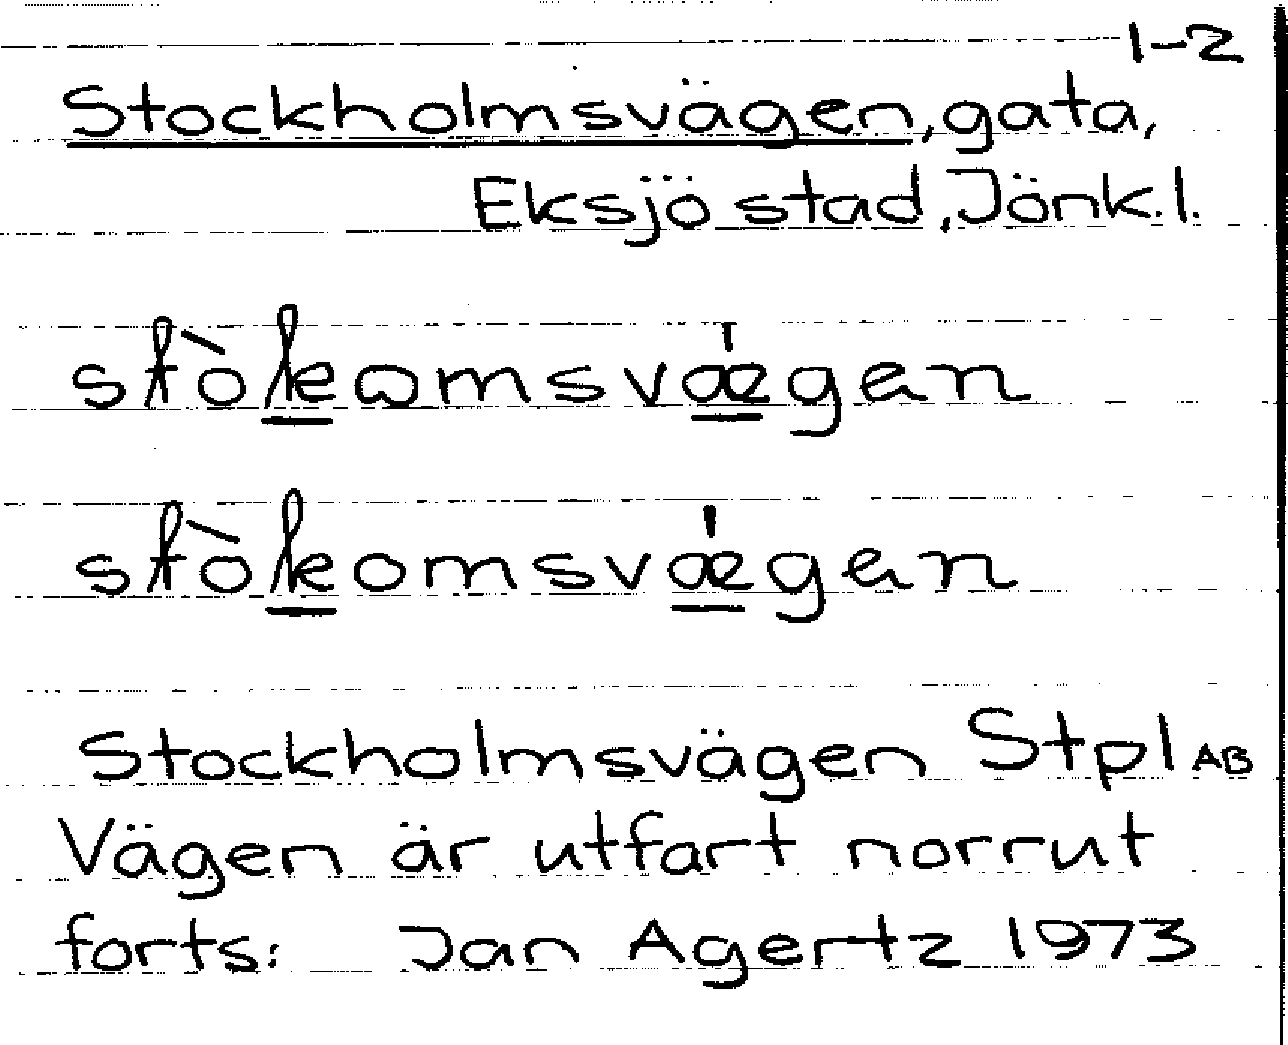 1-2
Stockholmsvägen, gata,
Eksjö stad, Jönk. l.
stòkωmsvǽgan
stòkomsvǽgan
Stockholmsvägen Stpl AB
Vägen är utfart norrut
forts: Jan Agertz 1973